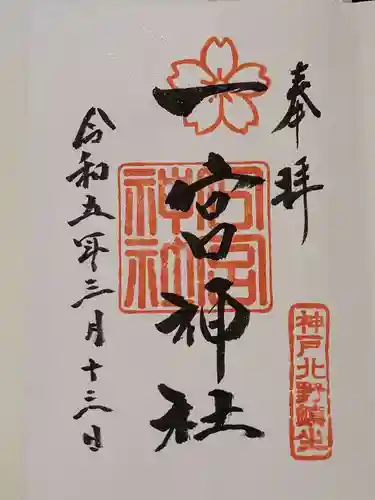 奉拝
神戸北野鎮坐
一宮神社
令和五年三月十三日